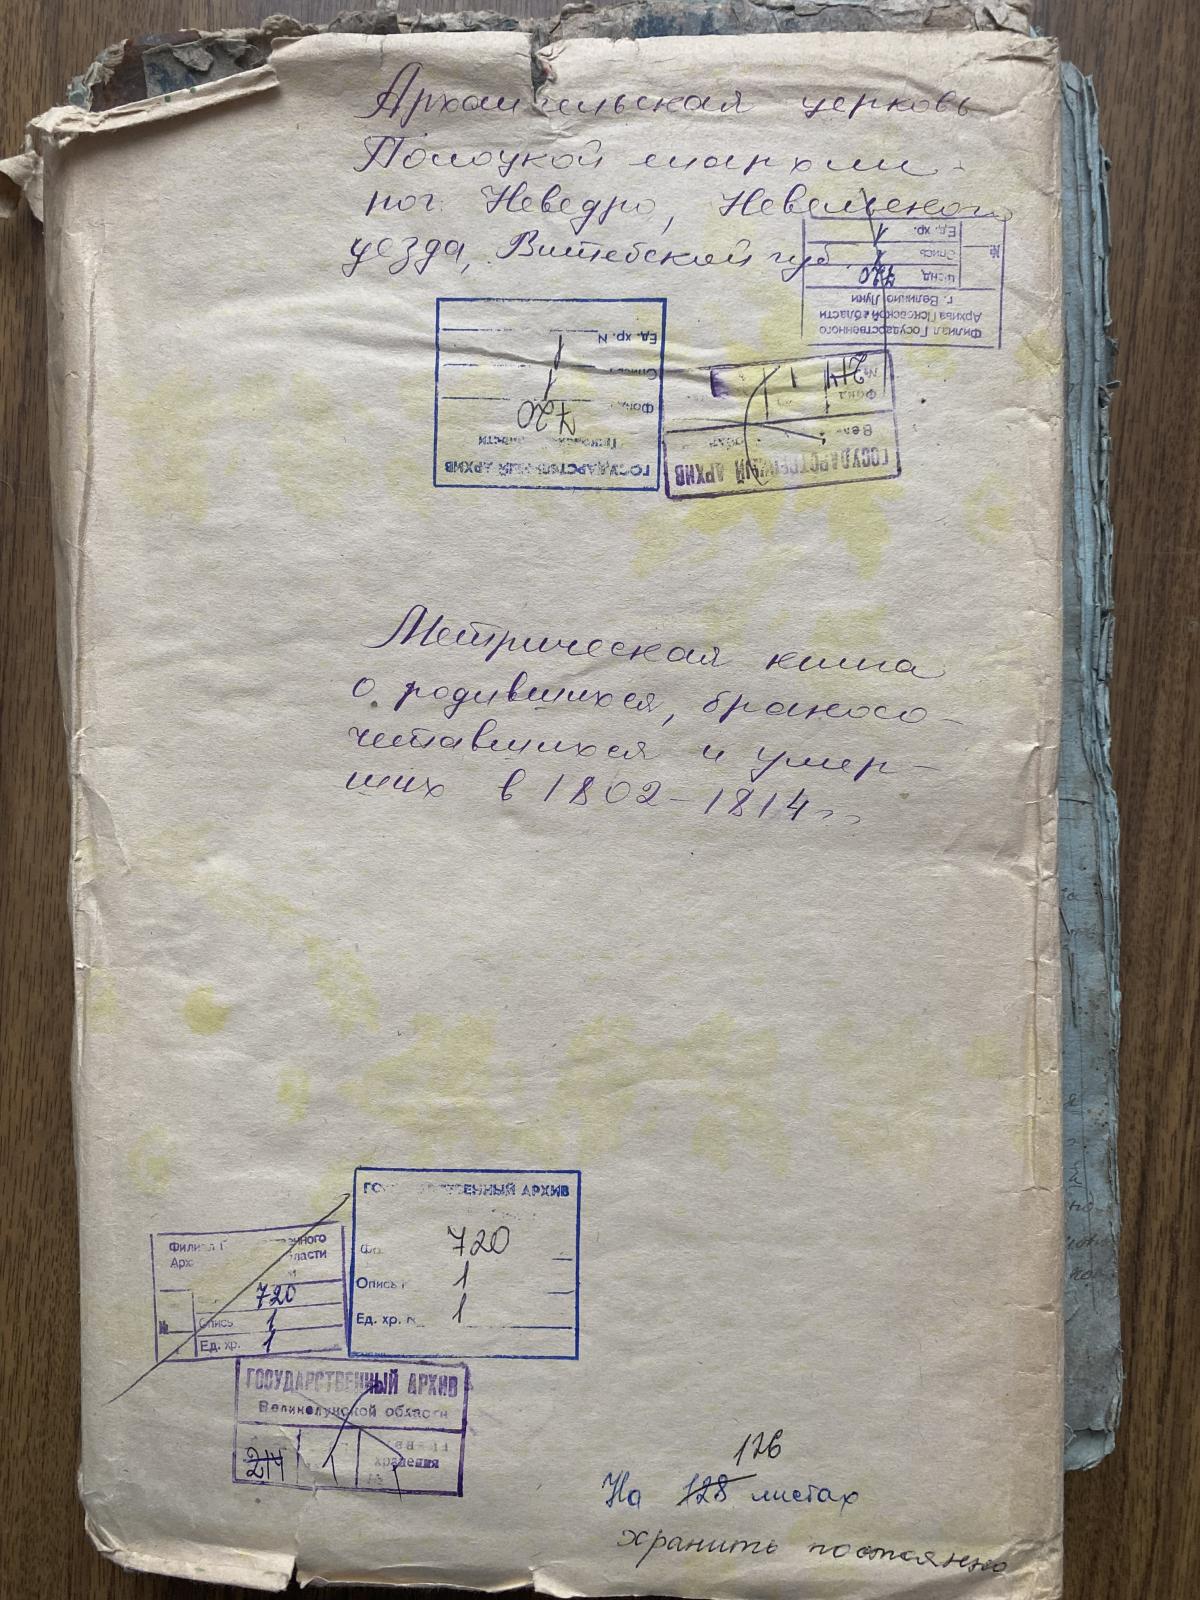 Архангельская церковь
Полоцкой епархии -
пог. Неведро, Невельского
уезда, Витебской губ.
Ед. хр. 1
Опись 1
фонд 720
№
г. Великие Луки
Архива Псковской области
Филиал Государственного
Ед. хр. N 1
Опись 1
Фонд 720
Псковской области
ГОСУДАРСТВЕННЫЙ АРХИВ
№ 214 1
Фонд
Вел
ГОСУДАРСТВЕННЫЙ АРХИВ
Метрическая книга
о родившихся, бракосо-
четавшихся и умер-
ших в 1802-1814 гг.
ГОСУДАРСТВЕННЫЙ АРХИВ
720
Опись 1
Ед. хр. 1
Филиал Государственного
Архива области
720
№ Опись 1
Ед. хр. 1
ГОСУДАРСТВЕННЫЙ АРХИВ
Великолукской области
214 1 1
хранения
126
На 128 листах
хранить постоянно